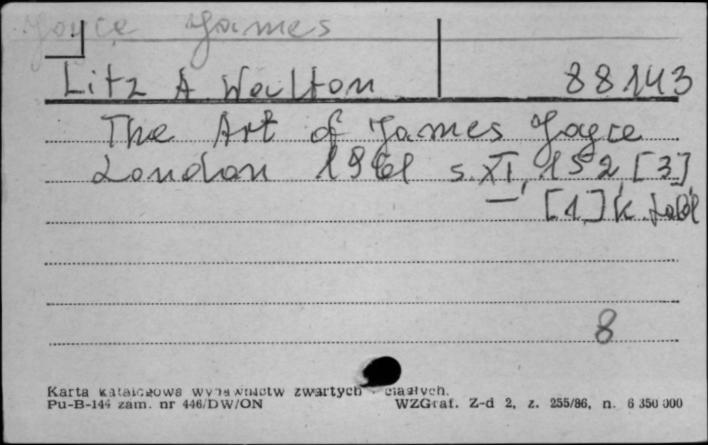 Joyce James
Litz A Walton 88143
The Art of James Joyce
London 1961 s. XI, 152, [3]
[1] k. tabl
8
Karta katalogowa wydawnictw zwartych - ciągłych.
Pu-B-144 zam. nr 446/DW/ON WZGraf. Z-d 2, z. 255/86, n. 6 350 000